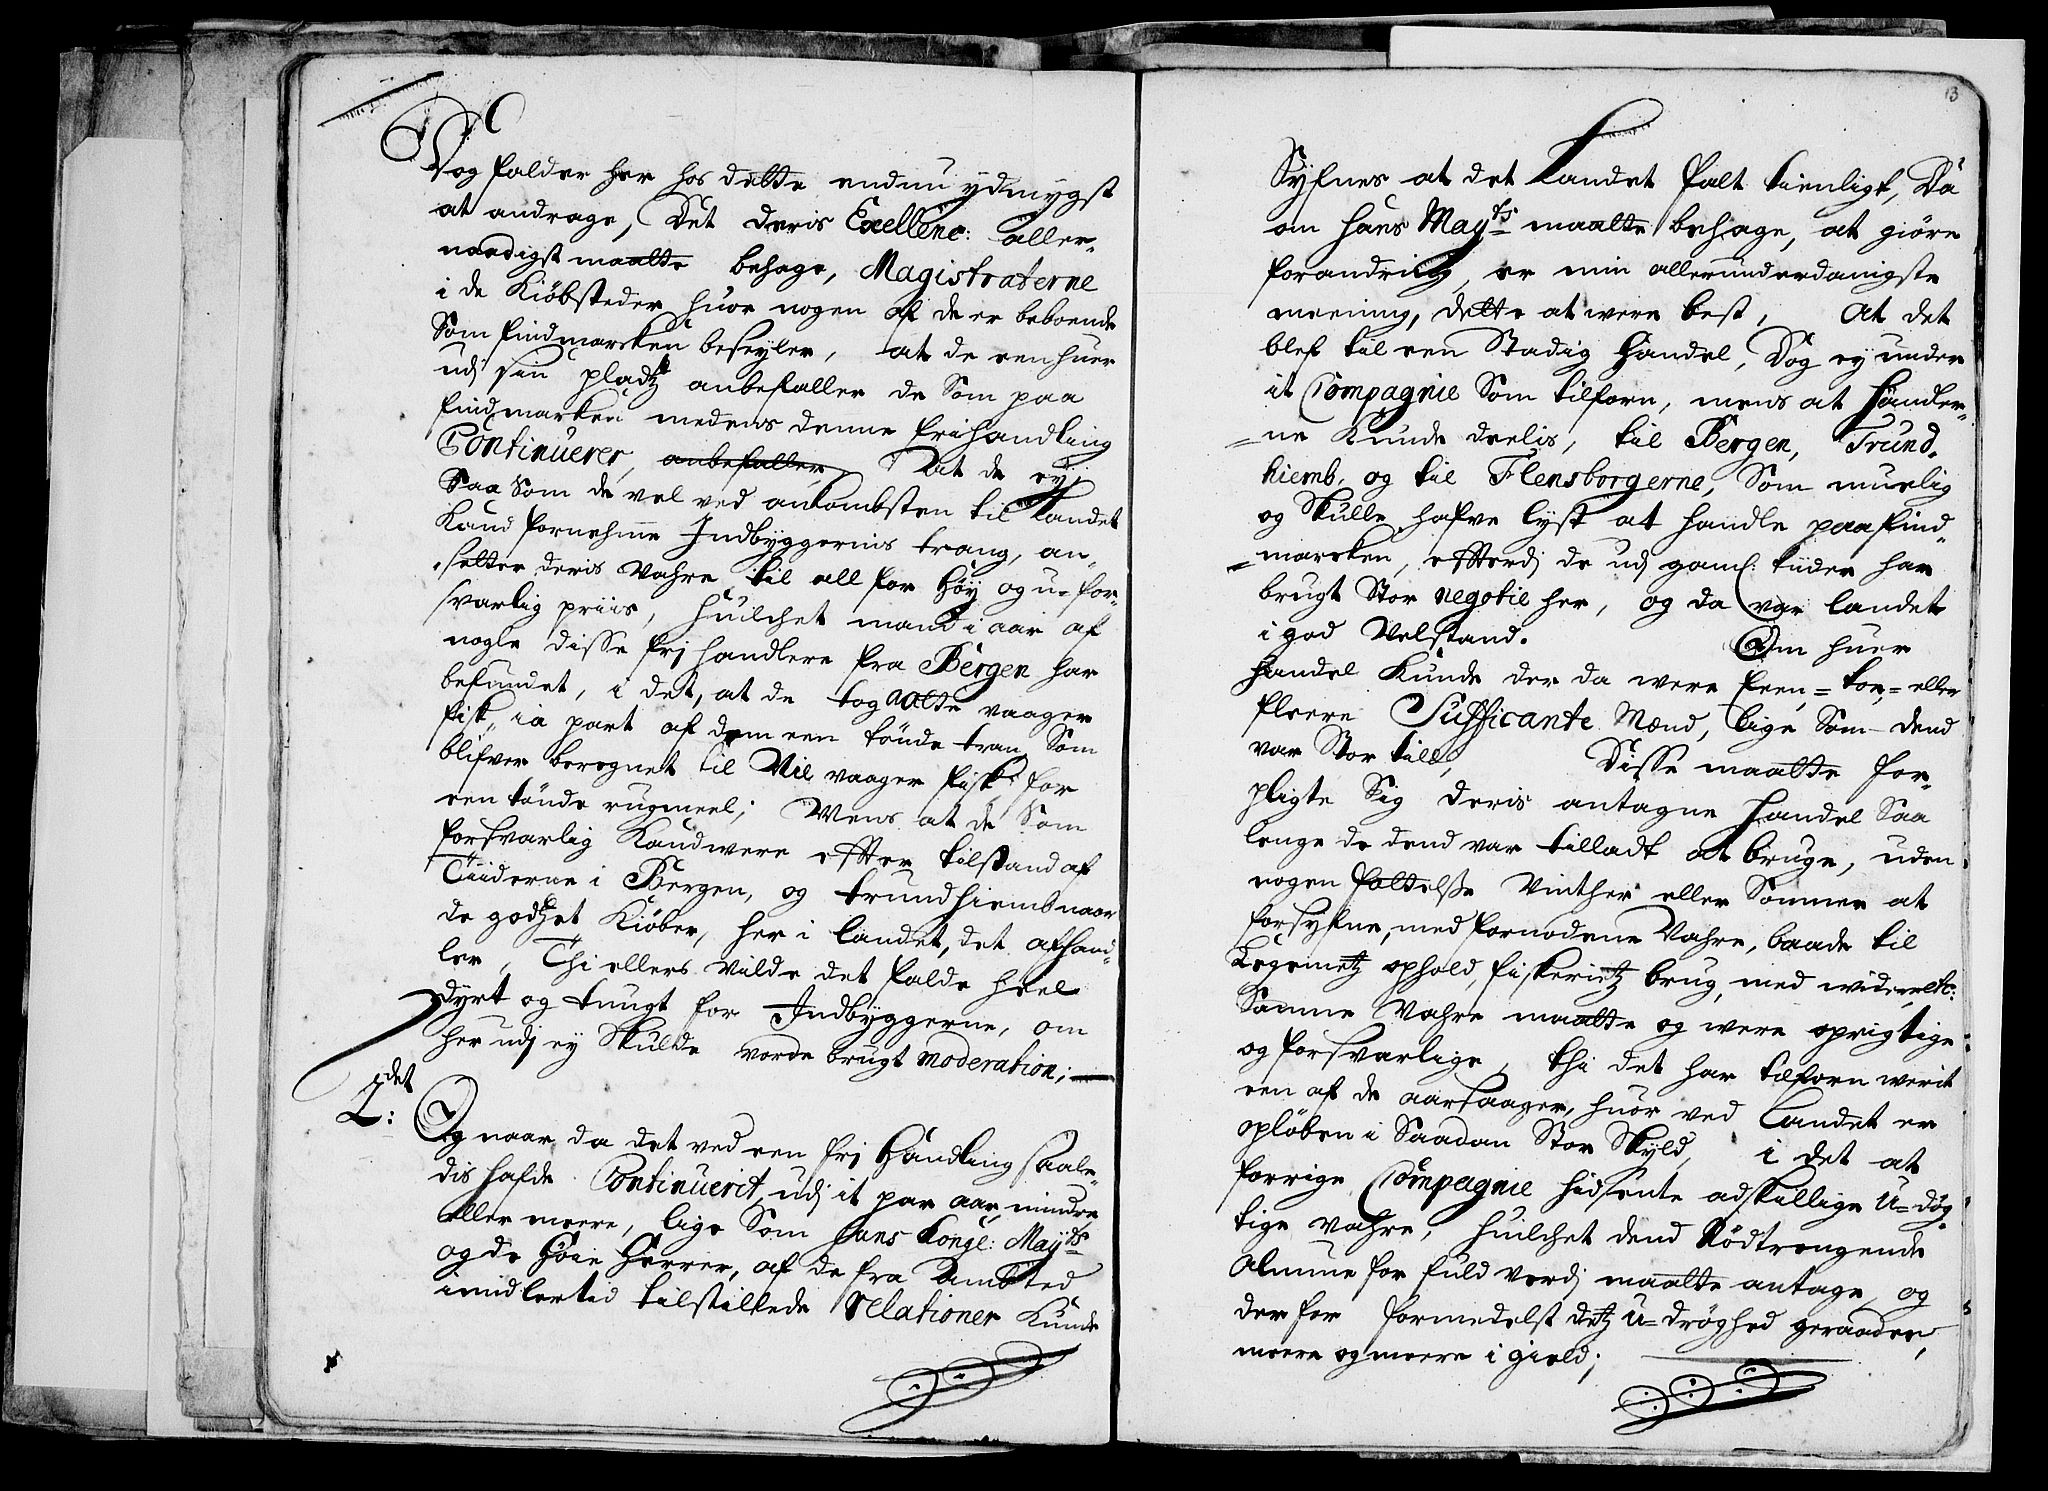 og falder her hos dette endnu ydmygst
at andrage, Det deris Exellenc: aller-
naadigst maatte behage, Magistraterne
i de Kiöbsteder huor nogen af de er beboende
Som findmarcken beseyler, at de een huer
udj sin pladtz anbefaller de Som paa
findmarcken medens denne frihandling
Continuerer, anbefaller, at de ey
Saa Som de vel ved ankombsten til Landet
Kand fornehme Indbyggernis trang, an-
setter deris Vahre til all for Höy og u-for-
svarlig priis, huilchet mand i aar af
nogle disse frj handlere fra Bergen har
befundet, i det, at de tog otte vaager
fisk, ia part af dem een tönde tran Som
blifver beregnet til VIII vaager fisk for
een tönde rugmeel; Mens at de Som
forsvarlig Kand were effter tilstand af
Tiiderne i Bergen, og trundhiemb naar
de godtzet Kiöber, her i landet, det afhand-
ler, Thi ellers vilde det falde heel
dyrt og tungt for Indbyggerne, om
her udj ey Skulde vorde brugt moderation;
2det: Og naar da det ved een frj Handling saale-
dis hafde Continuerit, udj it par aar mindre
eller meere, lige Som Hans Kongl: Mayts
og de Höie Herrer, af de fra Ambted
imidlertid tilstillede Relationer Kunde
13
Syfnes at det Landet falt tienligt, Da
om Hans Mayts maatte behage, at giöre
forandring, er min allerunderdanigste
meening, dette at were best, At det
blef til een Stadig Handel, Dog ey under
it Compagnie Som tilforn, mens at Hander-
ne Kunde deelis, til Bergen, Trund-
hiemb, og til Flensborgerne, Som muelig
og Skulle hafve lyst at handle paa find-
marcken, effterdj de udj gaml: tiider har
brugt Stor negotie her, og da var landet
i god Velstand. Om huer
Handel Kunde der da were Een- toe- eller
fleere Sufficante Mænd, lige Som dend
var Stor till, Disse maatte for-
pligte Sig deris antagne Handel Saa
lenge de dend var tilladt at bruge, uden
nogen feilelsse Vinther eller Sommer at
forsyfne, med fornödene Vahre, baade til
Legemetz ophold, fiskerietz brug, med widere etc:
Samme Vahre maatte og were oprigtige
og forsvarlige, thi det har tilforn werit
een af de aarsaager, huor ved Landet er
oplöben i Saadan Stor Skyld, i det at
forrige Compagnie hidsente adskillige U-dög-
tige vahre, huilchet dend Nödtrengende
Almue for fuld verdj maatte antage, og
der for formedelst detz U-dröghed geraader,
meere og meere i gield;